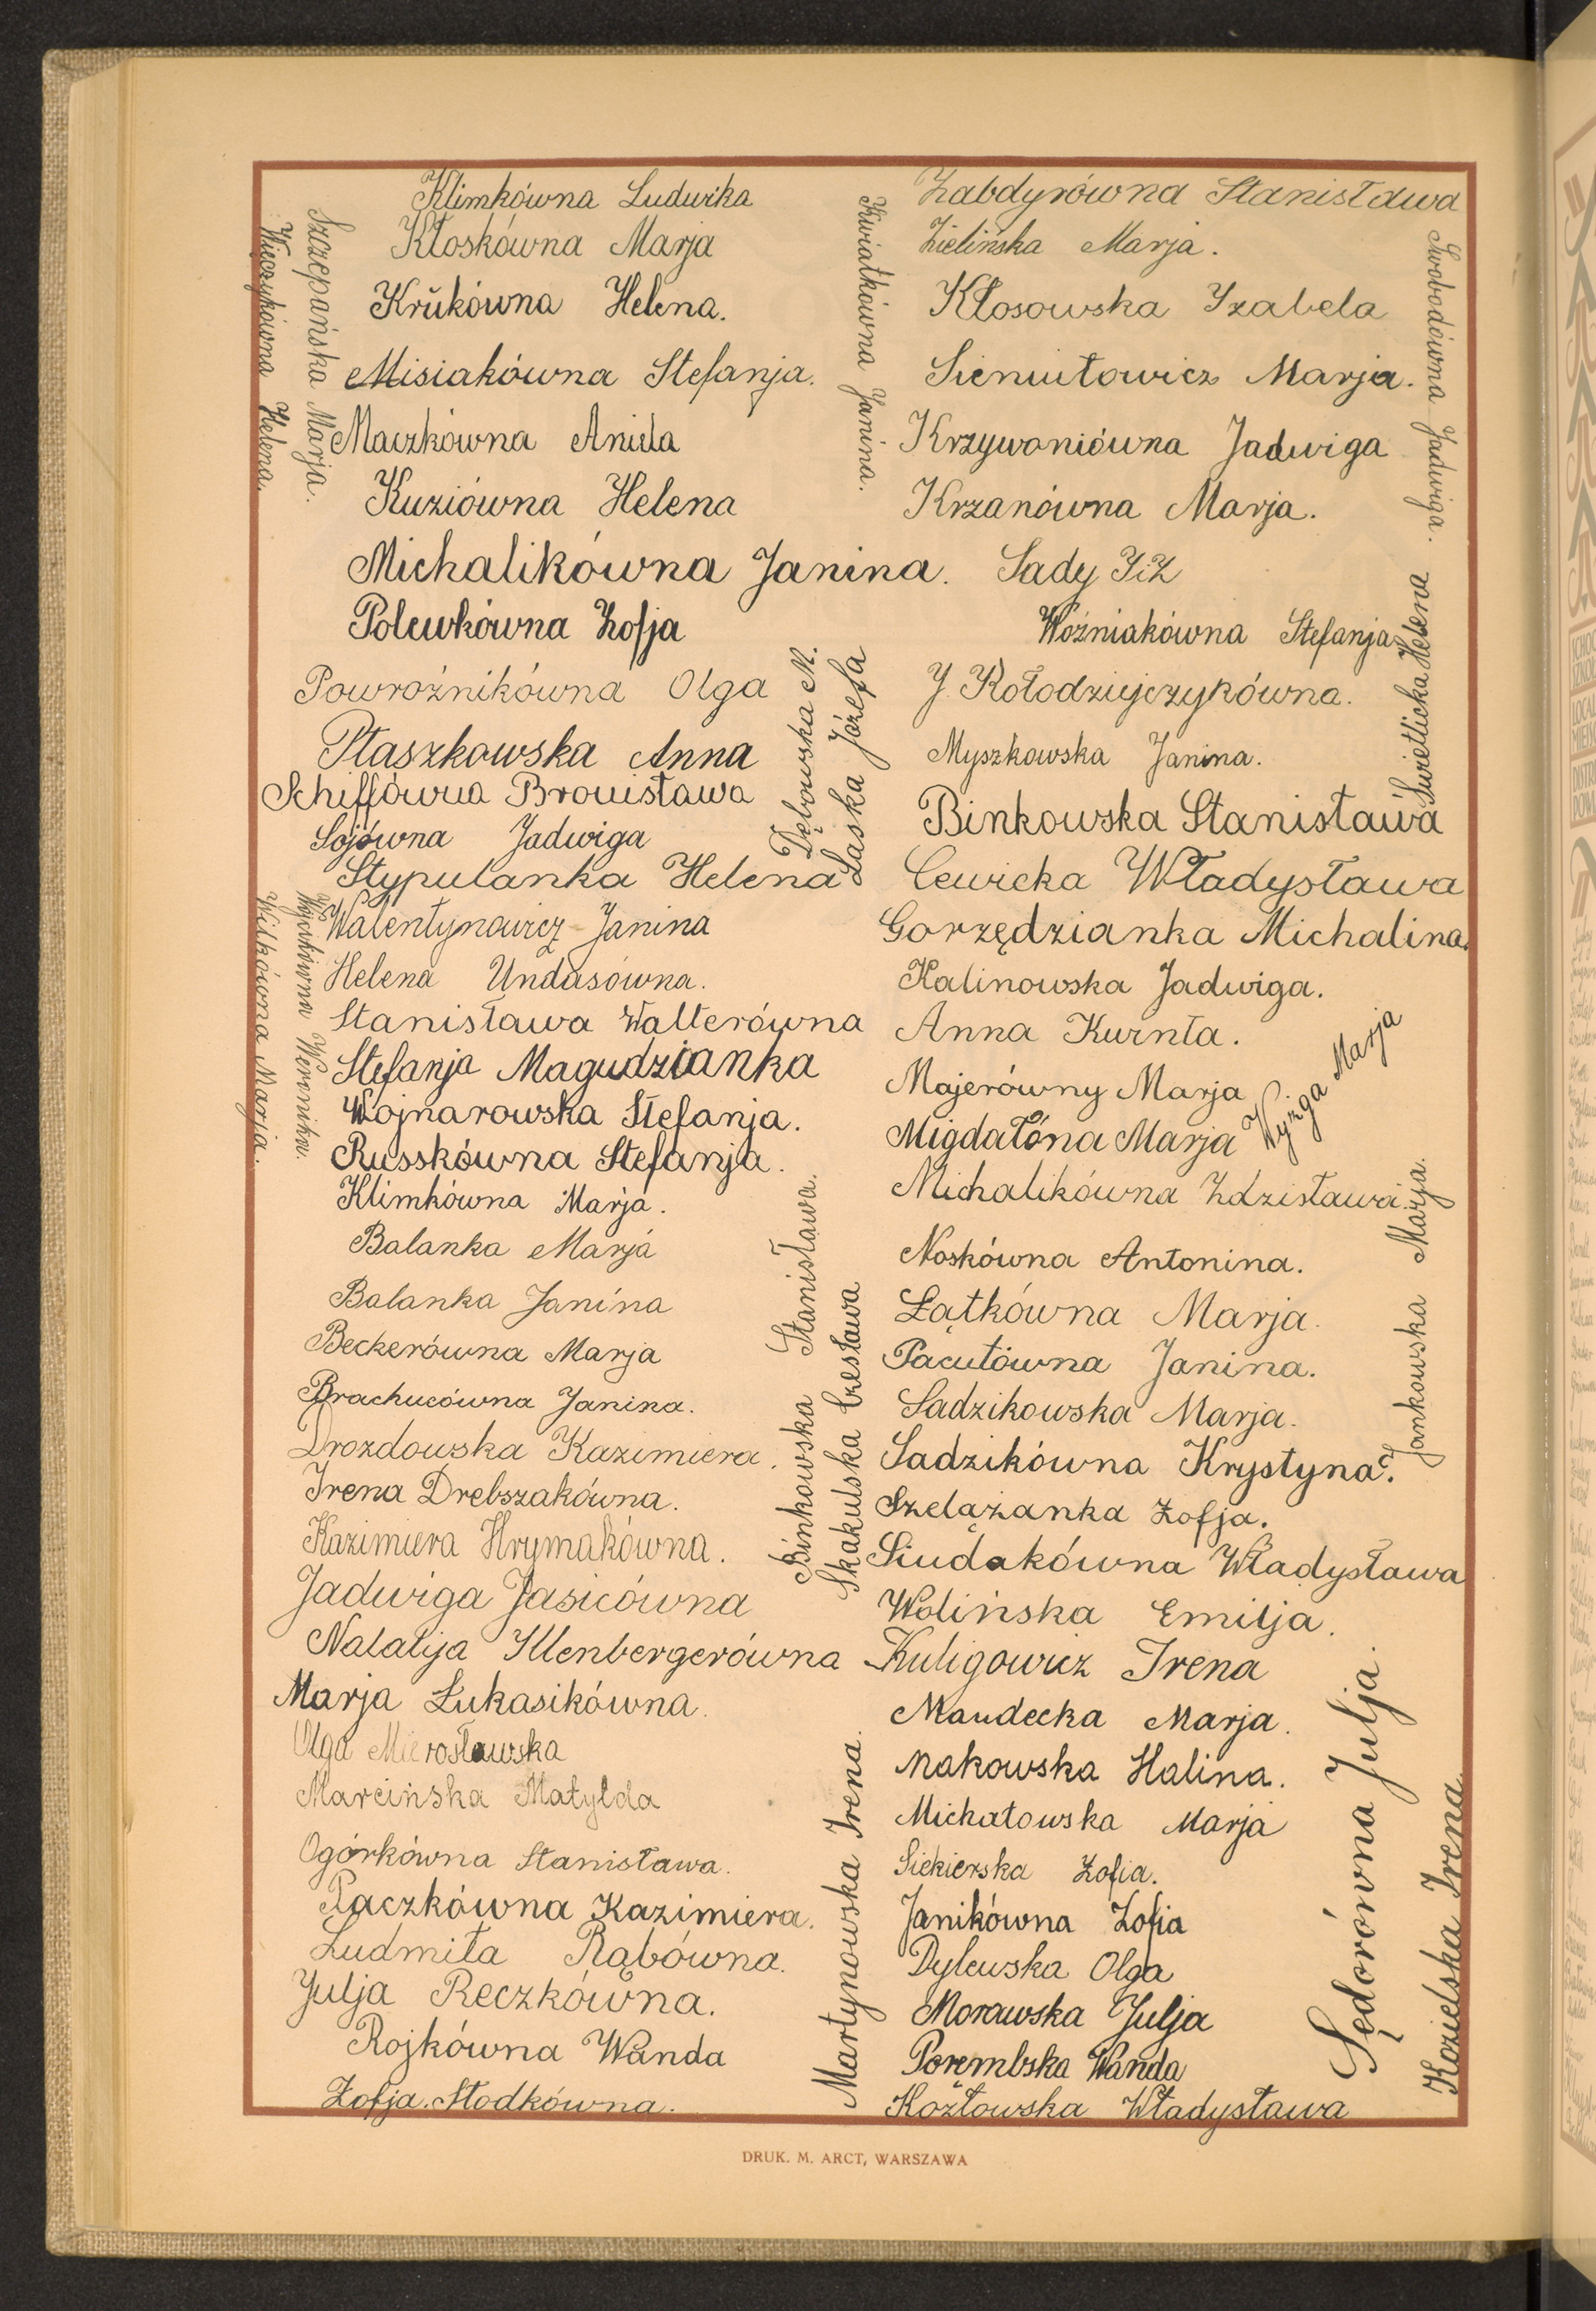 Klimkówna Ludwika
Kłoskówna Marja
Krukówna Helena.
Misiakówna Stefanja.
Maczkówna Aniela
Kuziówna Helena
Michalikówna Janina.
Polewkówna Zofja
Powroźnikówna Olga
Ptaszkowska Anna
Schiffówna Bronisława
Sojówna Jadwiga
Stypulanka Helena
Walentynowicz Janina
Helena Undasówna.
Stanisława Walterówna
Stefanja Magudzianka
Wojnarowska Stefanja.
Russkówna Stefanja.
Klimkówna Marja.
Balanka Marja
Balanka Janina
Beckerówna Marja
Brachucówna Janina.
Drozdowska Kazimiera.
Irena Drebszakówna.
Kazimiera Hrymakówna.
Jadwiga Jasicówna
Natalja Illenbergerówna
Marja Łukasikówna.
Olga Mierosławska
Marcińska Matylda
Ogórkówna Stanisława.
Raczkówna Kazimiera.
Ludmiła Rąbówna.
Julja Reczkówna.
Rojkówna Wanda
Zofja Słodkówna.
Szczepańska Marja.
Więczykówna Helena.
Wójcikówna Weronika.
Wilkówna Marja.
Kwiatkówna Janina.
Dębowska M.
Laska Józefa
Binkowska Stanisława.
Skakulska Czesława
Martynowska Irena.
Żabdyrówna Stanisława
Zielińska Marja.
Kłosowska Izabela
Sieniutowicz Marja.
Krzywoniówna Jadwiga
Krzanówna Marja.
Sady
Woźniakówna Stefanja
J. Kołodziejczykówna.
Myszkowska Janina.
Binkowska Stanisława
Cewicka Władysława
Gorzędzianka Michalina.
Kalinowska Jadwiga.
Anna Kurnta.
Majerówny Marja
Migdałóna Marja
Michalikówna Zdzisława.
Noskówna Antonina.
Łątkówna Marja.
Pacutówna Janina.
Sadzikowska Marja.
Sadzikówna Krystyna.
Szelążanka Zofja.
Siudakówna Władysława
Wolińska Emilja.
Kuligowicz Irena
Maudecka Marja.
Makowska Halina.
Michałowska Marja
Siekierska Zofia.
Janikówna Zofia
Dylewska Olga
Morawska Julja
Porembska Wanda
Kozłowska Władysława
Swobodówna Jadwiga.
Swietlicka Helena
Wyzga Marja
Jankowska Marja.
Sędorówna Julja.
Kozielska Irena.
DRUK. M. ARCT, WARSZAWA